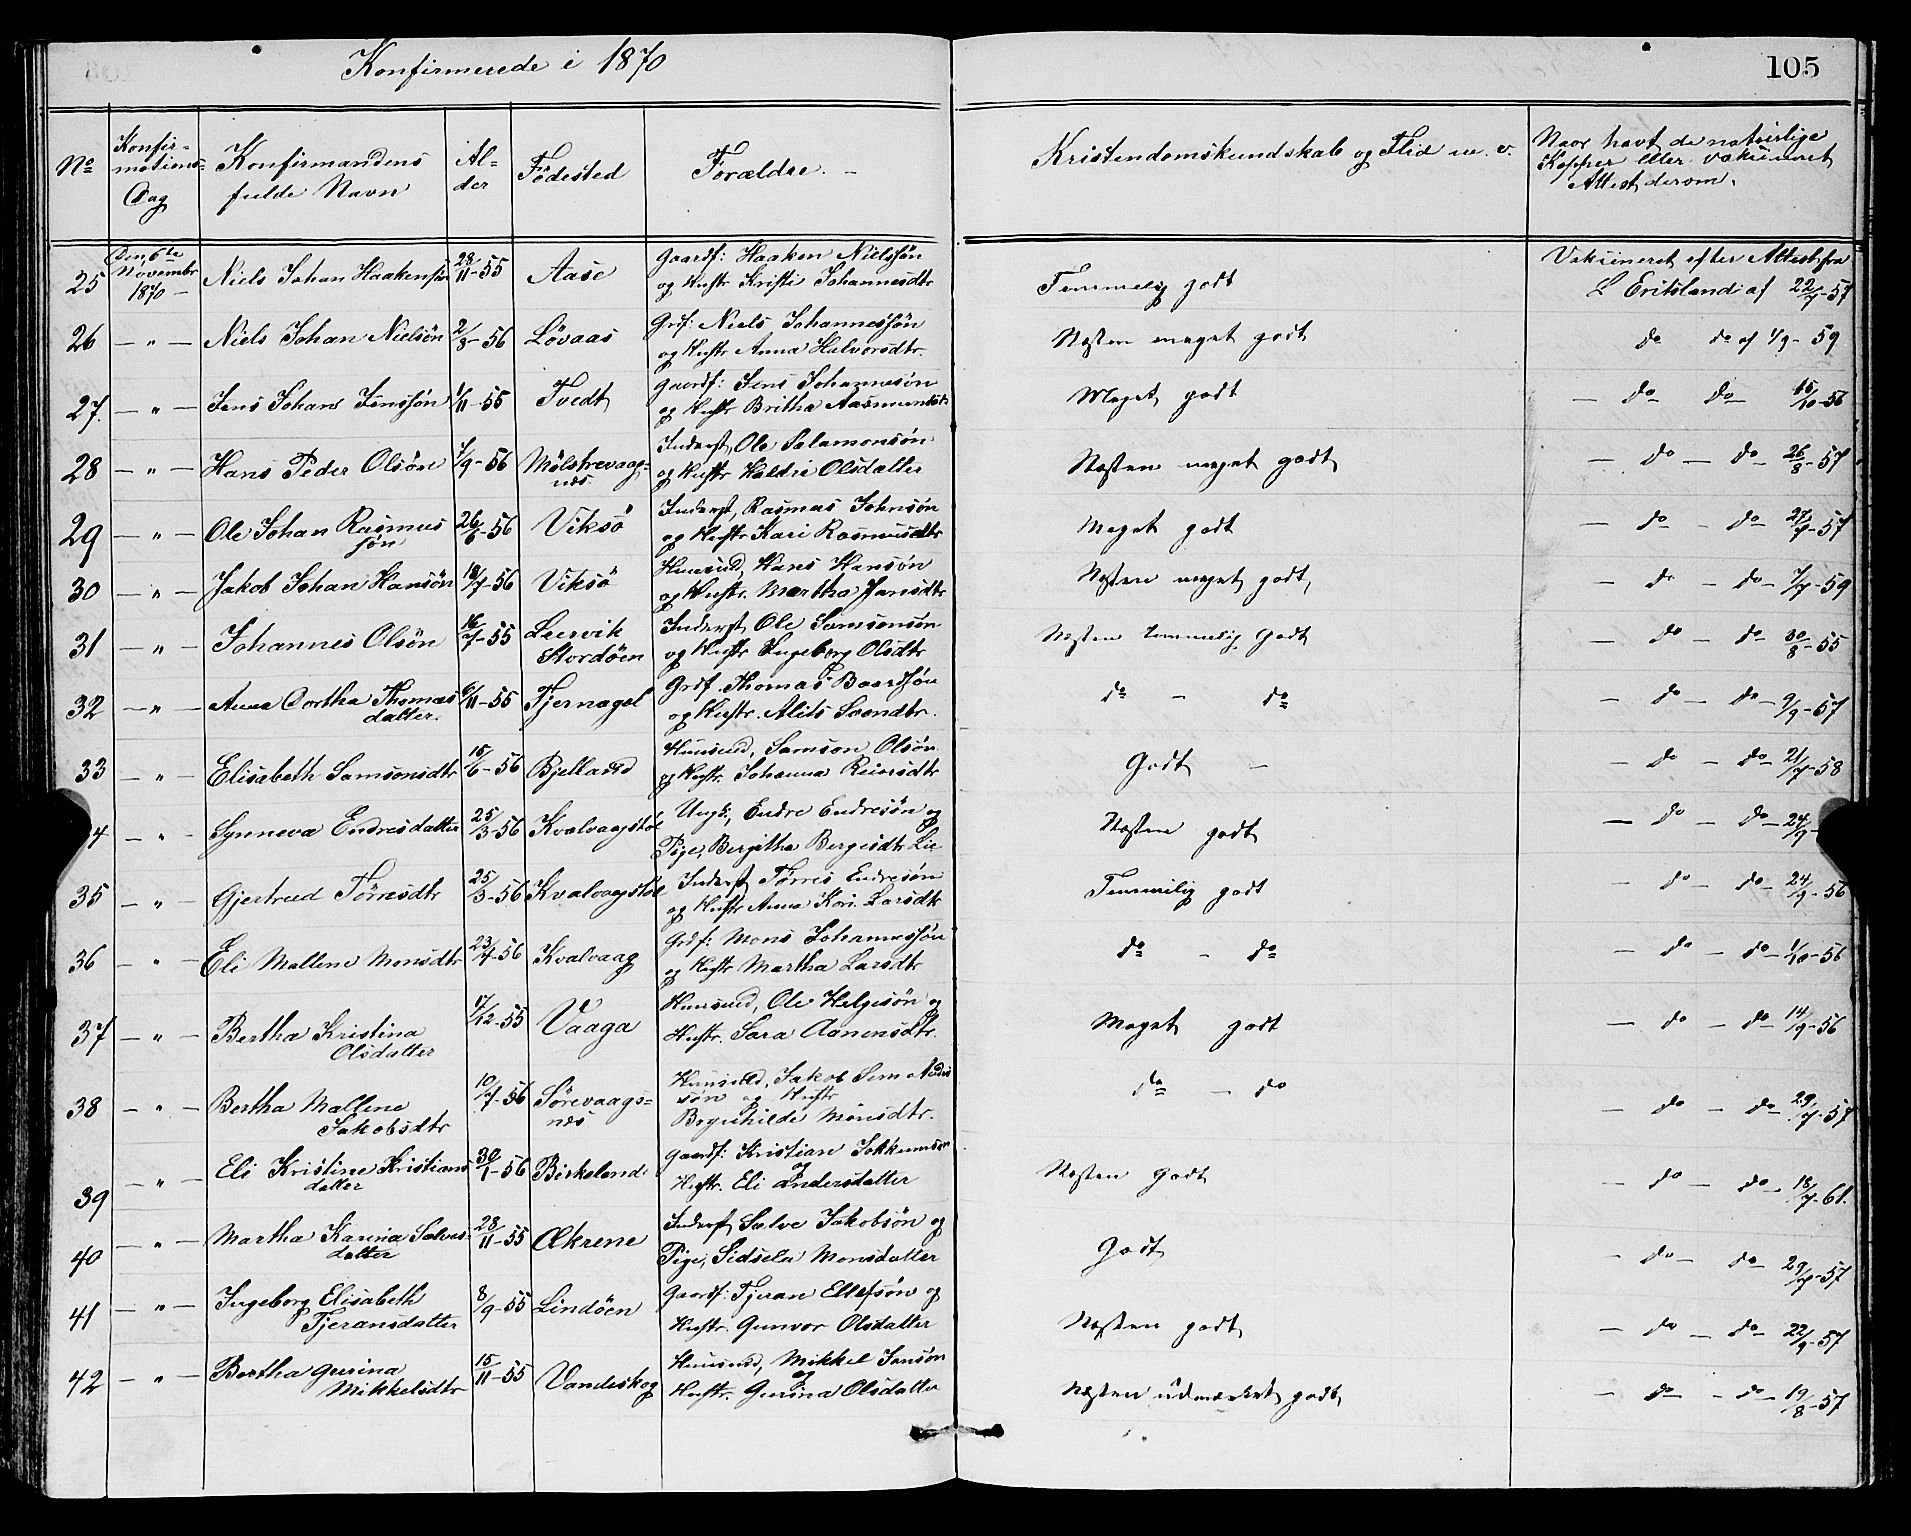 Konfirmerede i 1870
105
No
Konfir-
mations-
Dag
Konfirmandens
fulde Navn
Al-
der
Fødested
Forældre. -
Kristendomskundskab og Flid m. v.
Naar havt de naturlige
Kopper eller vakcineret
Attest derom.
25 Den 6te Novembr 1870 - Niels Johan Haakensøn 28/11-55 Aase Gaardf: Haaken Nielssøn
og Hustr Kristi Johannesdtr Temmelig godt Vakcineret efter Attest fra
L Eritsland af 22/7-57
26 - " - Niels Johan Nielsøn 2/8-56 Løvaas Grdf: Niels Johannessøn
og Hustr Anna Halvorsdtr. Næsten meget godt do do af 4/9-59
27. - " - Jens Johan Jenssøn 1/11-55 Tvedt Gaardf: Jens Johannesøn
og Hustr Britha Aasmundsdr Meget godt - do do 15/10-56
28 - " - Hans Peder Olsøn 1/9-56 Mølstrevaag-
næs Inderst, Ole Salamonsøn
og Hustr Haldri Olsdatter Næsten meget godt - do - do 26/8-57
29 - " - Ole Johan Rasmus
søn 26/6-56 Viksø Inderst, Rasmus Johnsøn
og Hustr Kari Rasmusdtr Meget godt - do - do 27/7-57
30 - " - Jakob Johan Hansøn 18/7-56 Viksø Huusmd, Hans Hansøn
og Hustr. Martha Jansdtr Næsten meget godt, - do - do - 7/7-59
31 - " - Johannes Olsøn 16/7-55 Leervik
Stordøen Inderst Ole Samsonsøn
og Hustr Ingeborg Olsdtr Næsten temmelig Godt - do - do - 30/8-55
32 - " - Anna Dortha Thomas
datter. 6/11-55 Tjernagel Grdf. Thomas Baardsøn
og Hustr. Alits Svendtr. do - do - do - do - 9/9-57
33 - " - Elisabeth Samsonsdtr 15/6-56 Bjelland Huusmd, Samson Olsøn
og Hustr. Johanna Reiersdtr Godt - - do - do - 21/7-58
4 - " - Synneva Endresdatter 25/3-56 Kvalvaagstøl Ungk:, Endre Endresøn og
Pige, Bergitha Bergesdtr Lie Næsten godt - do - do - 24/9-
35 - " - Gjertrud Tørresdtr 25/3-56 Kvalvaagstøl Inderst Tørris Endresøn
og Hustr Anna Kari Larsdtr Temmelig godt - do - do - 24/9-56
36 - " - Eli Mallene Monsdtr 23/4-56 Kvalvaag Grdf: Mons Johannessøn
og Hustr Martha Larsdtr do - do - do - do - 1/10-56
37 - " - Bertha Kristina
Olsdatter 17/12-55 Vaaga Huusmd, Ole Helgesøn og
Hustr. Sara Aanensdtr. Meget godt - do - do 14/9-56
38 - " - Bertha Mallene
Jakobsdtr 10/7-56 Sørevaags-
næs Huusmd, Jakob Sem
søn og Hustr
Bognhilde Monsdtr. do - do - do - do 29/7-57
39 - " - Eli Kristine Kristians
datter 30/1-56 Birkeland: Gaardf: Kristian Jokkumsøn
og
Hustr. Eli Andersdatter Næsten Godt - do - do - 18/7-61.
40 - " - Martha Karina Salves-
datter 28/11-55 Ækrene Inderst, Salve Jakobsøn og
Pige, Sidsela Monsdatter Godt - do - do - 29/7-57
41 - " - Ingeborg Elisabeth
Tjeransdatter 8/9-55 Lindøen Gaardf: Tjeran Ellefsøn og
Hustr. Gunvor Olsdatter Næsten godt - do - do - 22/9-57
42 - " - Bertha Gurina
Mikkelsdtr 15/11-55 Vandeskog Huusmd, Mikkel Jansøn
og
Hustr. Gurina Olsdatter Næsten udmærket godt - do - do - 19/8-57